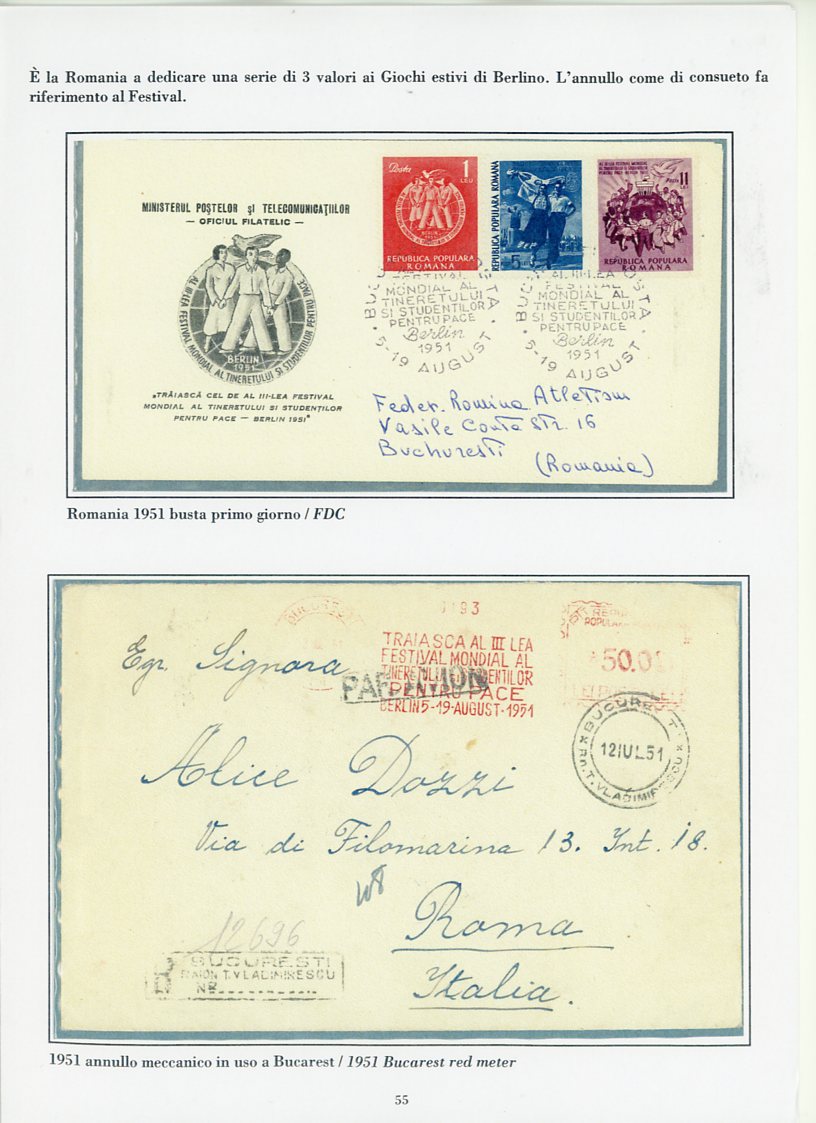 È la Romania a dedicare una serie di 3 valori ai Giochi estivi di Berlino. L'annullo come di consueto fa
riferimento al Festival.
MINISTERUL POȘTELOR și TELECOMUNICAȚIILOR
— OFICIUL FILATELIC —
AL III-LEA FESTIVAL MONDIAL AL TINERETULUI SI STUDENTILOR PENTRU PACE
BERLIN
1951
„TRĂIASCĂ CEL DE AL III-LEA FESTIVAL
MONDIAL AL TINERETULUI SI STUDENȚILOR
PENTRU PACE — BERLIN 1951"
Posta 1
LEU
BERLIN
1951
REPUBLICA POPULARA
ROMANA
REPUBLICA POPULARA ROMANA
AL III-LEA FESTIVAL MONDIAL
AL TINERETULUI SI STUDENTILOR
PENTRU PACE - BERLIN 1951
Posta 11
LEI
REPUBLICA POPULARA
ROMANA
FESTIVAL
MONDIAL AL
TINERETULUI
SI STUDENTILOR
PENTRU PACE
Berlin
1951
5-19 AUGUST
AL III-LEA
FESTIVAL
MONDIAL AL
TINERETULUI
SI STUDENTILOR
PENTRU PACE
Berlin
1951
5-19 AUGUST
Feder. Romina Atletism
Vasile Conta Str. 16
Buchuresti
(Romania)
Romania 1951 busta primo giorno / FDC
193
TRAIASCA AL III LEA
FESTIVAL MONDIAL AL
TINERETULUI SI STUDENTILOR
PENTRU PACE
BERLIN 5-19-AUGUST-1951
POPULARA
50.0
PAR AVION
BUCUREȘTI
12 IUL 51
RN. T. VLADIMIRESCU
Egr. Signora
Alice Dozzi
Via di Filomarina 13. Int. 18.
Roma
Italia.
12696
BUCUREȘTI
RAION T. VLADIMIRESCU
NR
1951 annullo meccanico in uso a Bucarest / 1951 Bucarest red meter
55